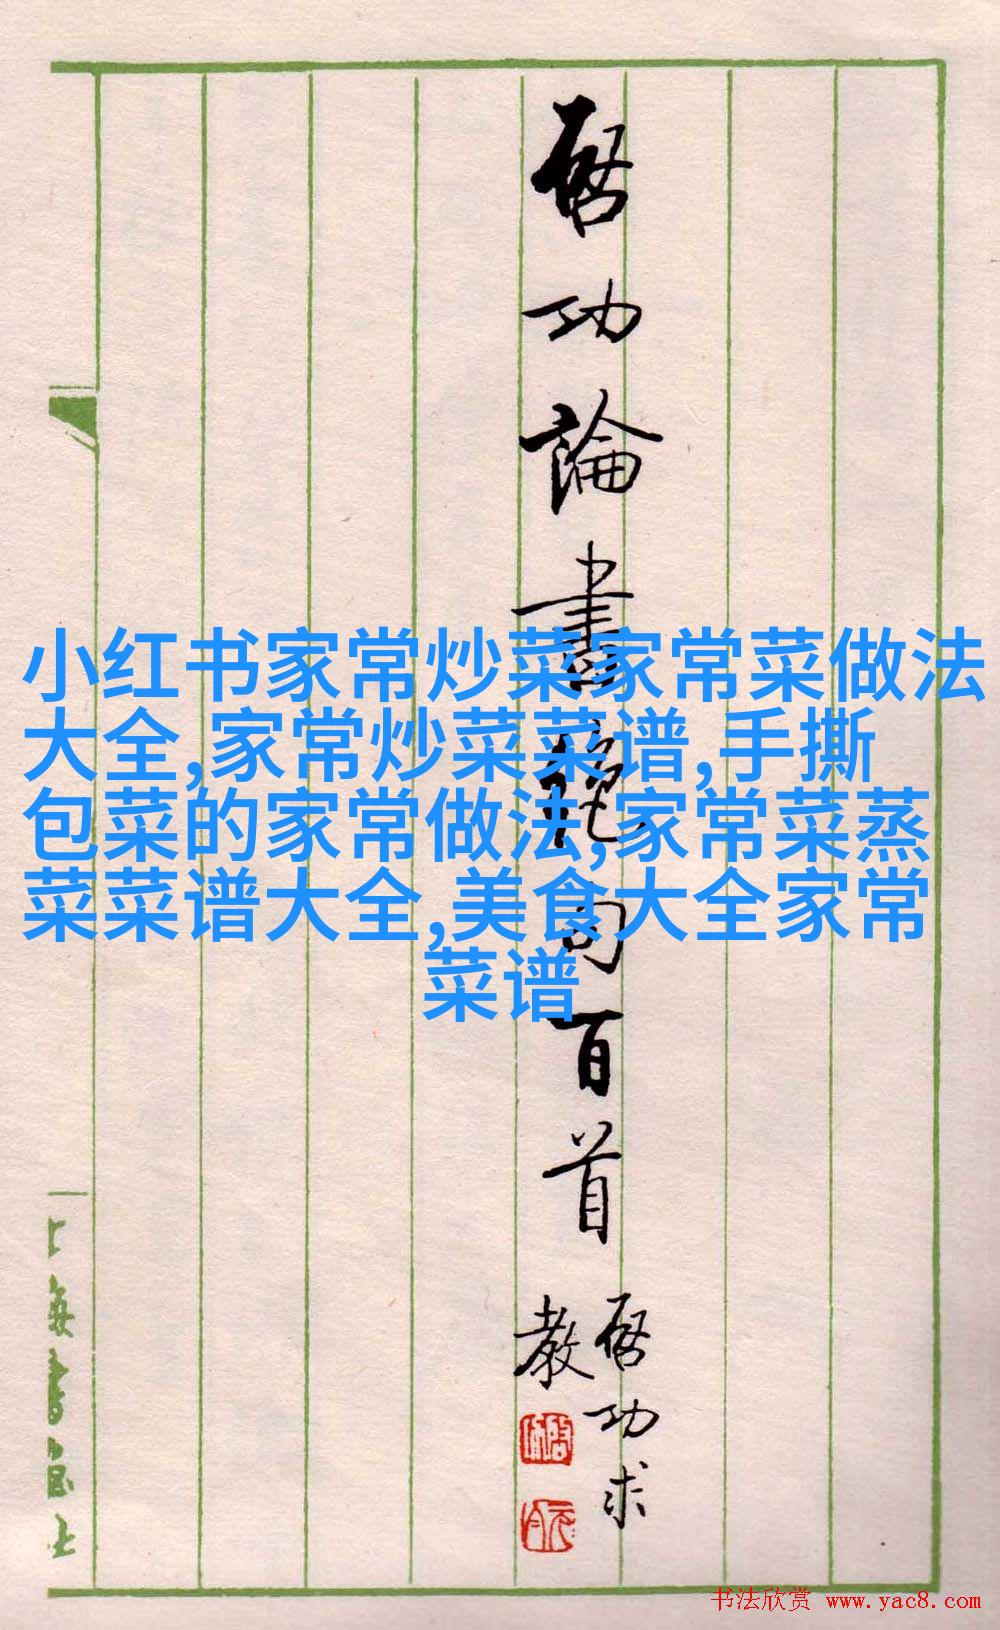 启功論書絶句百首
启功求
教
小红书家常炒菜家常菜做法
大全,家常炒菜菜谱,手撕
包菜的家常做法,家常菜蒸
菜菜谱大全,美食大全家常
菜谱
书法欣赏 www.yac8.com